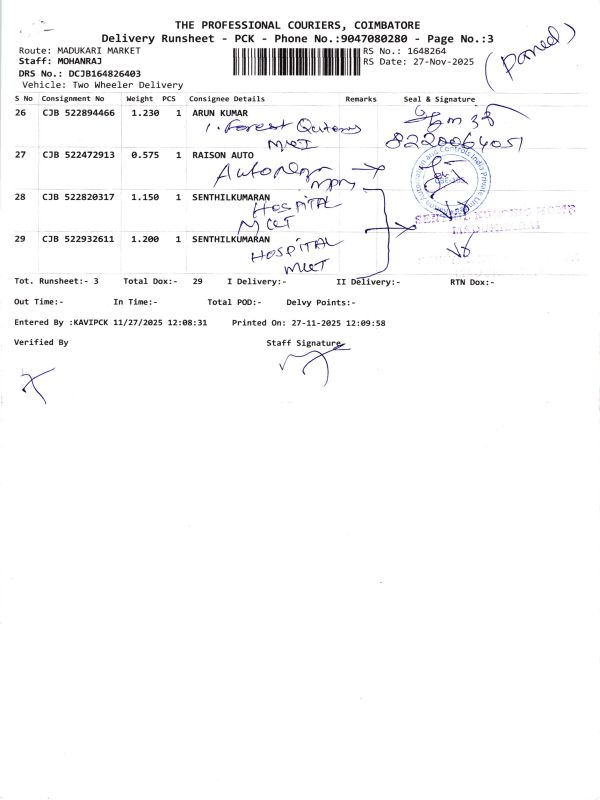 THE PROFESSIONAL COURIERS, COIMBATORE
Delivery Runsheet - PCK - Phone No.:9047080280 - Page No.:3
(Paned)
Route: MADUKARI MARKET RS No.: 1648264
Staff: MOHANRAJ RS Date: 27-Nov-2025
DRS No.: DCJB164826403
Vehicle: Two Wheeler Delivery
S No Consignment No Weight PCS Consignee Details Remarks Seal & Signature
26 CJB 522894466 1.230 1 ARUN KUMAR
1. Forest Quters
8220064051
27 CJB 522472913 0.575 1 RAISON AUTO
28 CJB 522820317 1.150 1 SENTHILKUMARAN
HOSPITAL
SENTHIL NURSING HOME
MADUKKARAI
29 CJB 522932611 1.200 1 SENTHILKUMARAN
HOSPITAL
Tot. Runsheet:- 3 Total Dox:- 29 I Delivery:- II Delivery:- RTN Dox:-
Out Time:- In Time:- Total POD:- Delvy Points:-
Entered By :KAVIPCK 11/27/2025 12:08:31 Printed On: 27-11-2025 12:09:58
Verified By Staff Signature